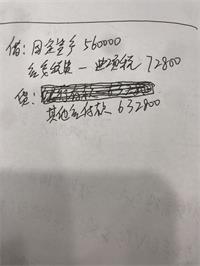 借：固定资产 560000
应交税费 — 进项税 72800
贷：
其他应付款 632800